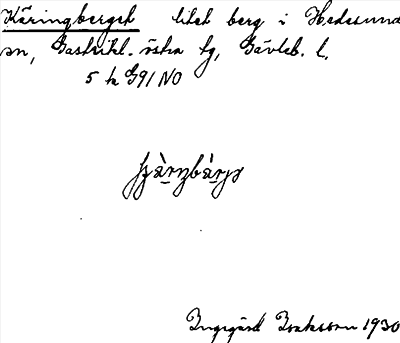 Käringberget litet berg i Hedesunda
sn, Gästrikl. östra tg, Gävleb. l.
5 h G91 NO
Ingegärd Isaksson 1930